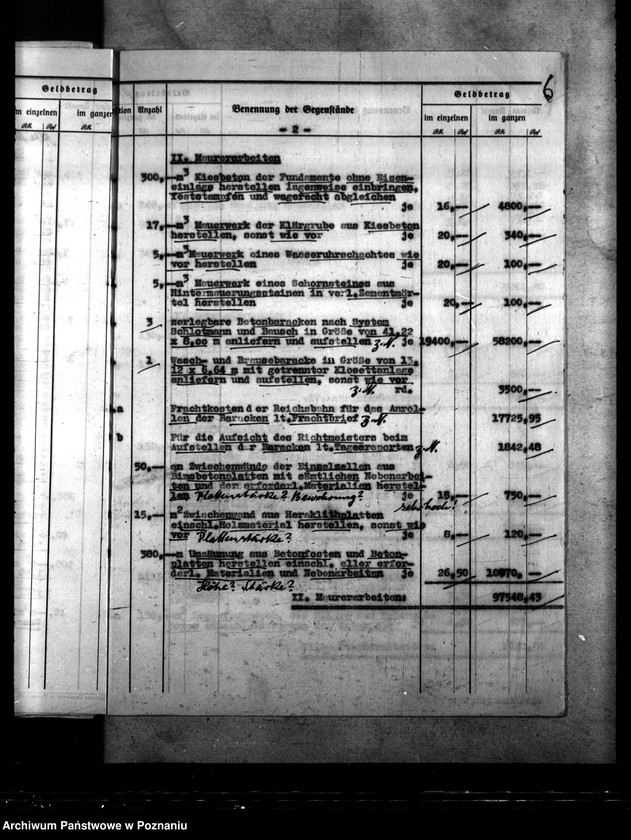 6
Geldbetrag
im einzelnen
im ganzen
RM Rpf RM
Anzahl
Benennung der Gegenstände
Geldbetrag
im einzelnen
im ganzen
RM Rpf RM Rpf
- 2 -
II. Maurerarbeiten
300,- m³ Kiesbeton der Fundamente ohne Eisen-
einlage herstellen lagenweise einbringen,
feststampfen und wagerecht abgleichen
je 16,— 4800,—
17,- m³ Mauerwerk der Klärgrube aus Kiesbeton
herstellen, sonst wie vor je 20,— 340,—
5,- m³ Mauerwerk eines Wasseruhrschachtes wie
vor herstellen je 20,— 100,—
5,- m³ Mauerwerk eines Schornsteines aus
Hintermauerungssteinen in verl.Zementmör-
tel herstellen je 20,— 100,—
3 zerlegbare Betonbaracken nach System
Schlotmann und Bausch in Größe von 41.22
x 8,00 m anliefern und aufstellen z.N. je 19400,— 58200,—
1 Wasch- und Brausebaracke in Größe von 13.
12 x 6,64 m mit getrennter Klosettanlage
anliefern und aufstellen, sonst wie vor
z.N. rd. 3500,—
a Frachtkosten der Reichsbahn für das Anrol-
len der Baracken lt.Frachtbrief z.N. 17725,95
b Für die Aufsicht des Richtmeisters beim
Aufstellen der Baracken lt.Tagesreporten z.N. 1842,48
50,- qm Zwischenwände der Einzelzellen aus
Bimsbetonplatten mit sämtlichen Nebenarbei-
ten und der erforderl.Materialien herstel-
len Plattenstärke? Bewehrung? je 15,— 750,—
sehr hoch!
15,- m² Zwischenwand aus Heraklithplatten
einschl.Holzmaterial herstellen, sonst wie
vor Plattenstärke? je 8,— 120,—
380,- m Umzäunung aus Betonfosten und Beton-
platten herstellen einschl. aller erfor-
derl. Materialien und Nebenarbeiten je 26,50 10070,—
Höhe? Stärke?
II. Maurerarbeiten: 97548,43
Archiwum Państwowe w Poznaniu